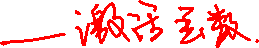 激活函数.